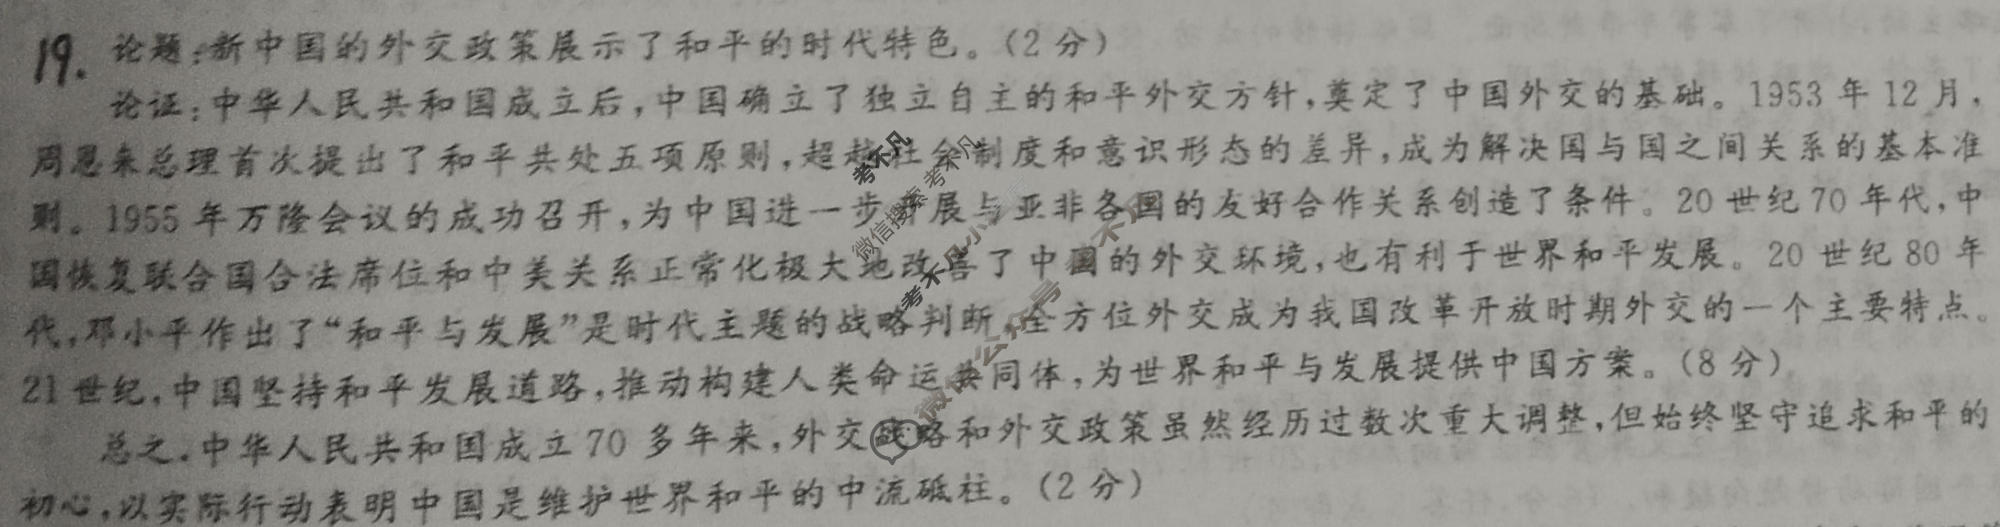 19. 论题:新中国的外交政策展示了和平的时代特色。(2分)
论证:中华人民共和国成立后,中国确立了独立自主的和平外交方针,奠定了中国外交的基础。1953年12月,
周恩来总理首次提出了和平共处五项原则,超越社会制度和意识形态的差异,成为解决国与国之间关系的基本准
则。1955年万隆会议的成功召开,为中国进一步开展与亚非各国的友好合作关系创造了条件。20世纪70年代,中
国恢复联合国合法席位和中美关系正常化极大地改善了中国的外交环境,也有利于世界和平发展。20世纪80年
代,邓小平作出了“和平与发展”是时代主题的战略判断,全方位外交成为我国改革开放时期外交的一个主要特点。
21世纪,中国坚持和平发展道路,推动构建人类命运共同体,为世界和平与发展提供中国方案。(8分)
总之,中华人民共和国成立70多年来,外交战略和外交政策虽然经历过数次重大调整,但始终坚守追求和平的
初心,以实际行动表明中国是维护世界和平的中流砥柱。(2分)
考不凡
微信搜索 考不凡
考不凡小
不凡
微信公众号